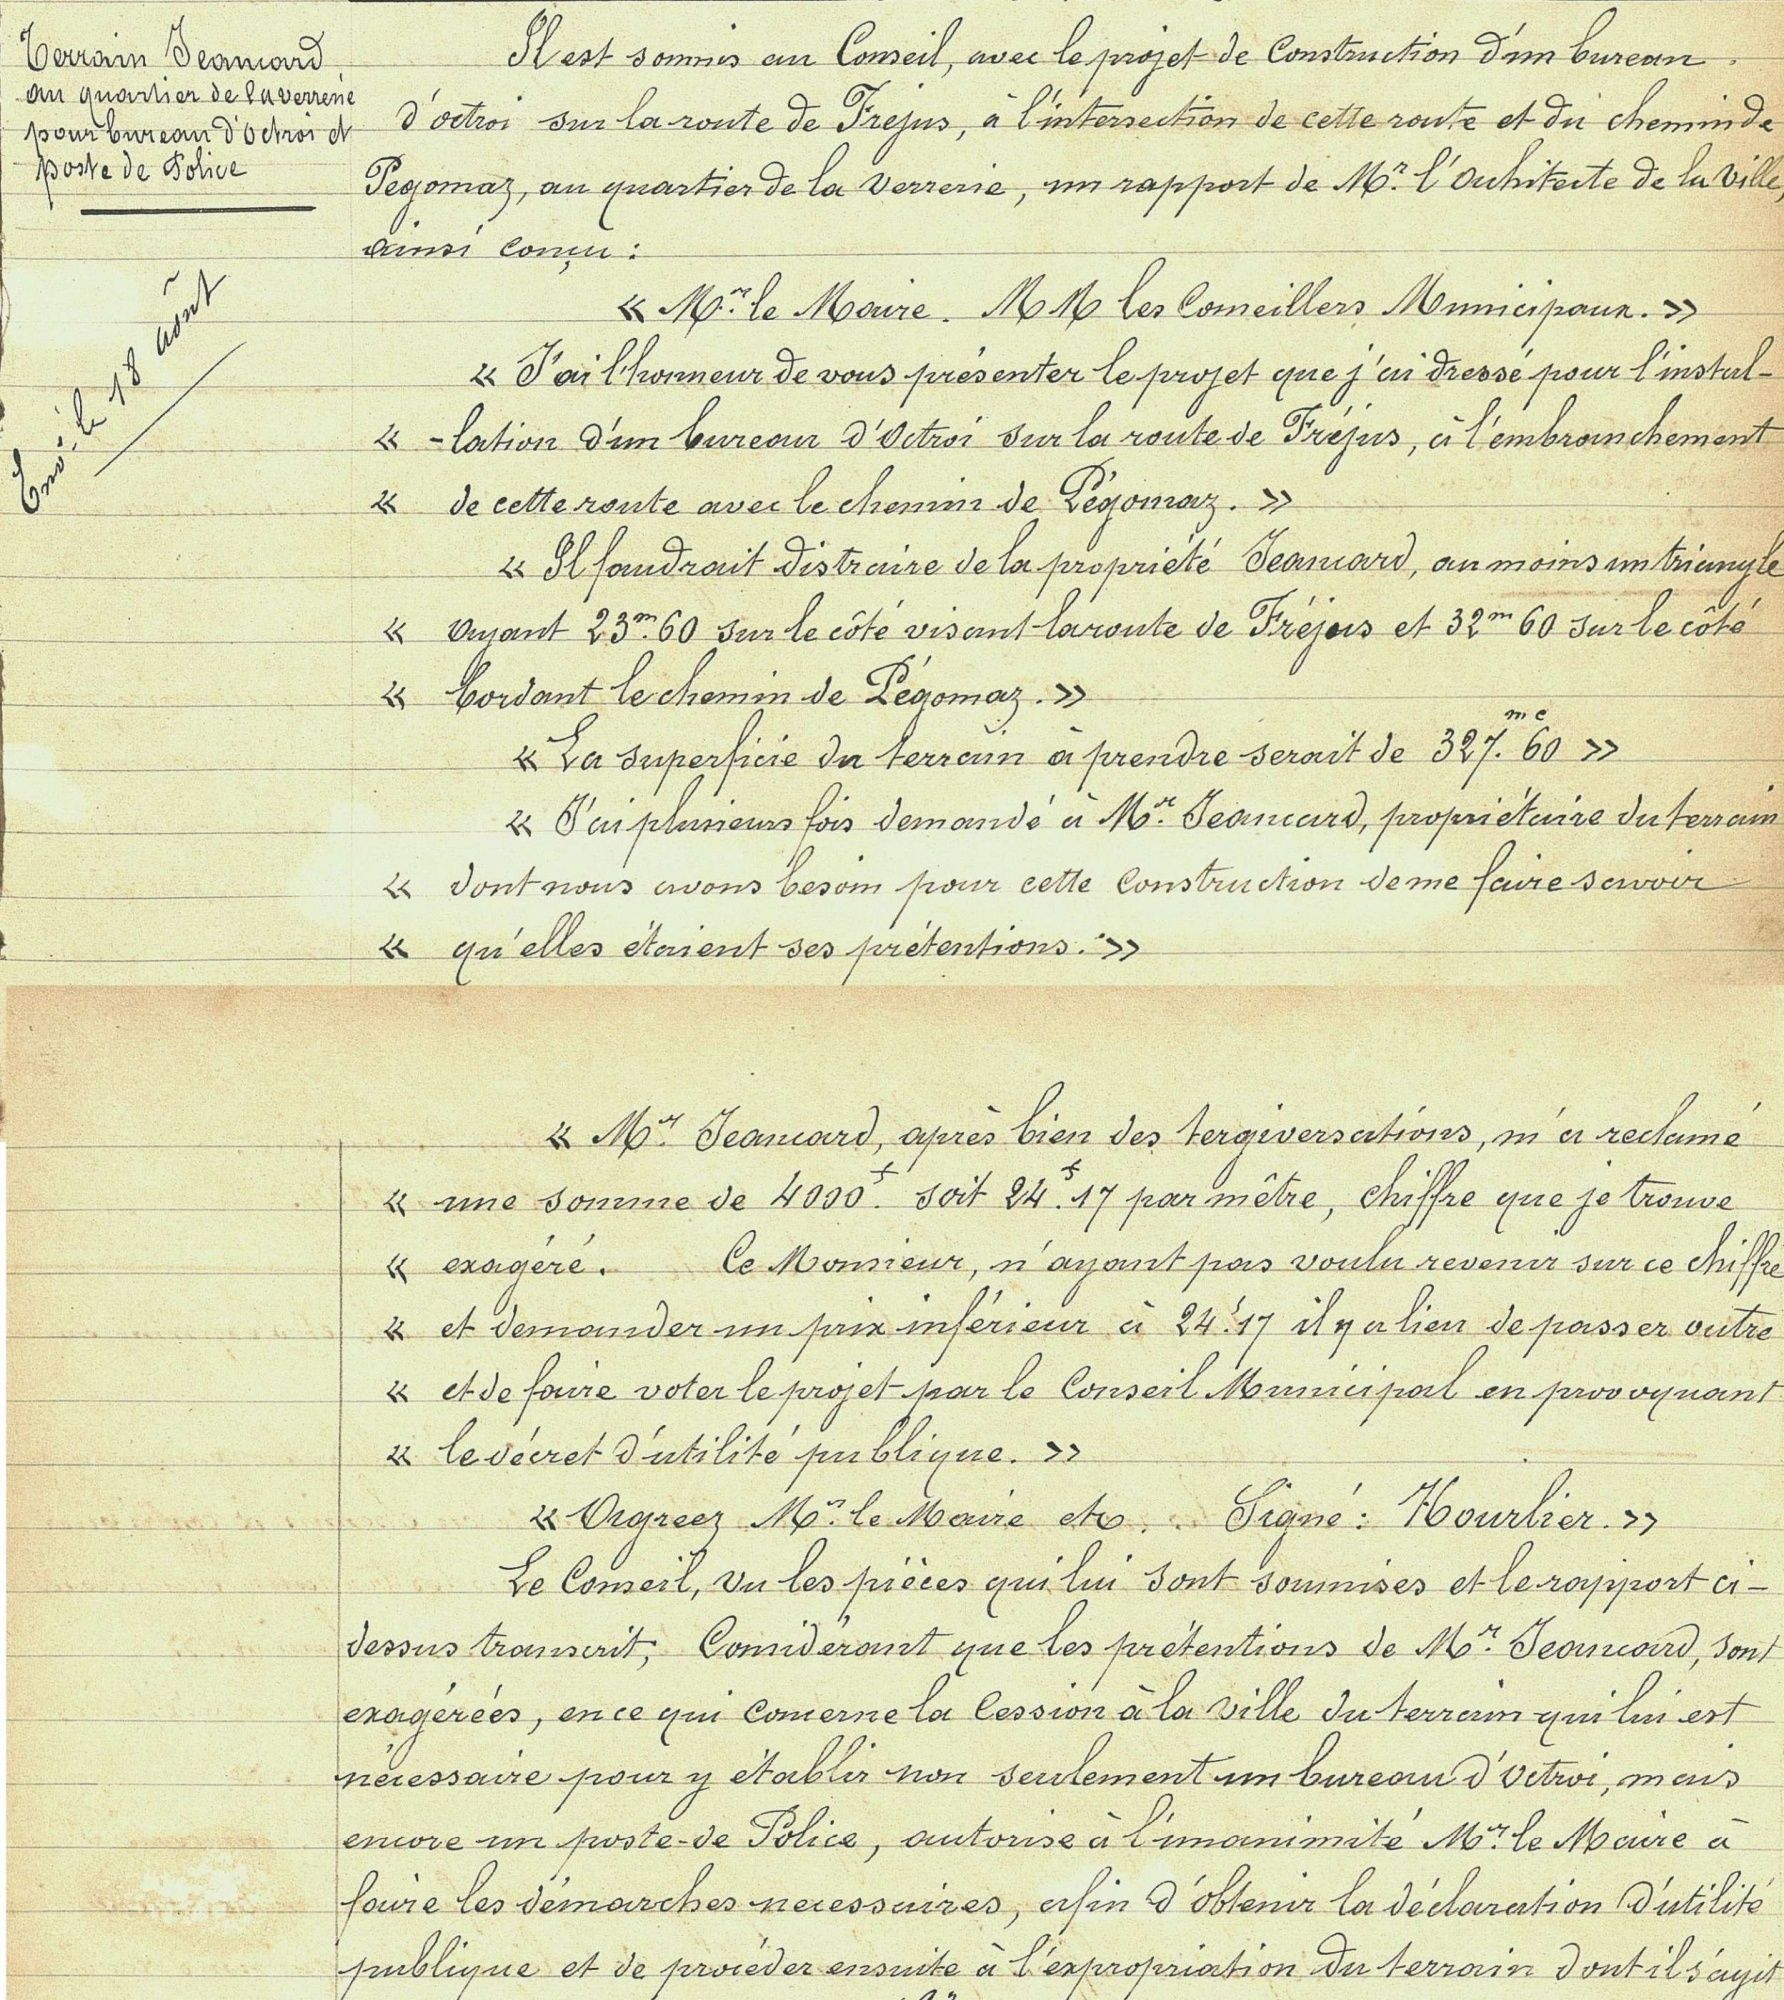 Terrain Jeancard
au quartier de la verrerie
pour bureau d'Octroi et
poste de Police
Envé. le 18 août
Il est soumis au Conseil, avec le projet de Construction d'un bureau
d'octroi sur la route de Fréjus, à l'intersection de cette route et du chemin de
Pégomaz, au quartier de la Verrerie, un rapport de Mr. l'Architecte de la Ville,
ainsi conçu :
« Mr. le Maire. MM les Conseillers Municipaux. »
« J'ai l'honneur de vous présenter le projet que j'ai dressé pour l'instal-
« -lation d'un bureau d'Octroi sur la route de Fréjus, à l'embranchement
« de cette route avec le chemin de Pégomaz. »
« Il faudrait distraire de la propriété Jeancard, au moins un triangle
« ayant 23m.60 sur le côté visant la route de Fréjus et 32m 60 sur le côté
« bordant le chemin de Pégomaz. »
« La superficie du terrain à prendre serait de 327.mc 60 »
« J'ai plusieurs fois demandé à Mr. Jeancard, propriétaire du terrain
« dont nous avons besoin pour cette Construction de me faire savoir
« qu'elles étaient ses prétentions. »
« Mr. Jeancard, après bien des tergiversations, m'a reclamé
« une somme de 4000f. soit 24f.17 par mêtre, chiffre que je trouve
« exagéré. Ce Monsieur, n'ayant pas voulu revenir sur ce chiffre
« et demander un prix inférieur à 24f.17 il y a lieu de passer outre
« et de faire voter le projet par le Conseil Municipal en provoquant
« le décret d'utilité publique. »
« Agreez Mr. le Maire etc. . Signé : Hourlier. »
Le Conseil, vu les pièces qui lui sont soumises et le rapport ci-
dessus transcrit; Considérant que les prétentions de Mr. Jeancard, sont
exagérées, en ce qui concerne la Cession à la ville du terrain qui lui est
nécessaire pour y établir non seulement un bureau d'Octroi, mais
encore un poste de Police, autorise à l'unanimité Mr. le Maire à
faire les démarches necessaires, afin d'obtenir la déclaration d'utilité
publique et de procéder ensuite à l'expropriation du terrain dont il s'agit